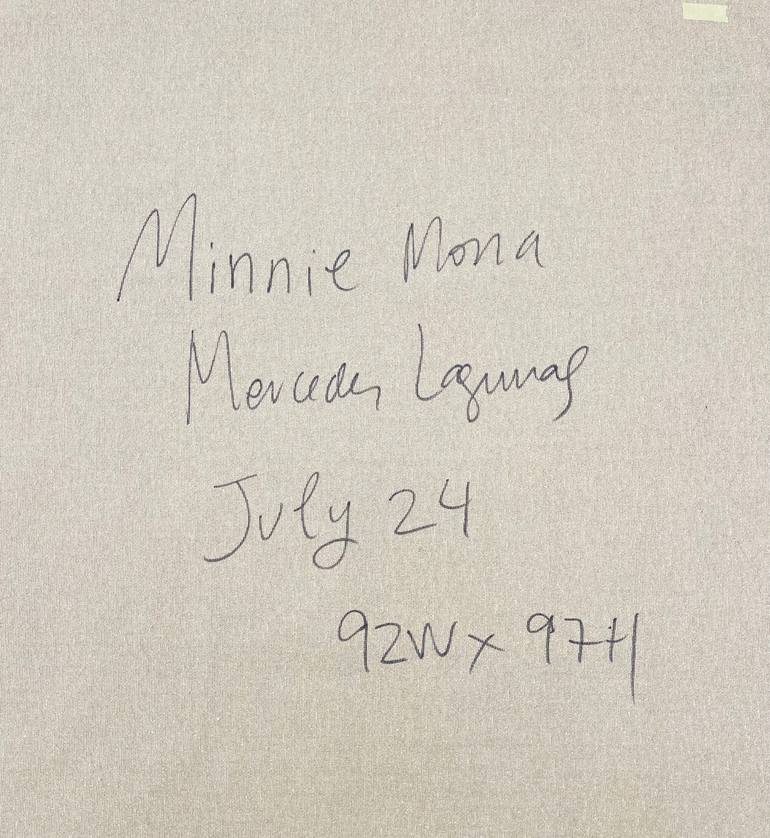 Minnie Mona
Mercedes Lagunas
July 24
92W x 97H